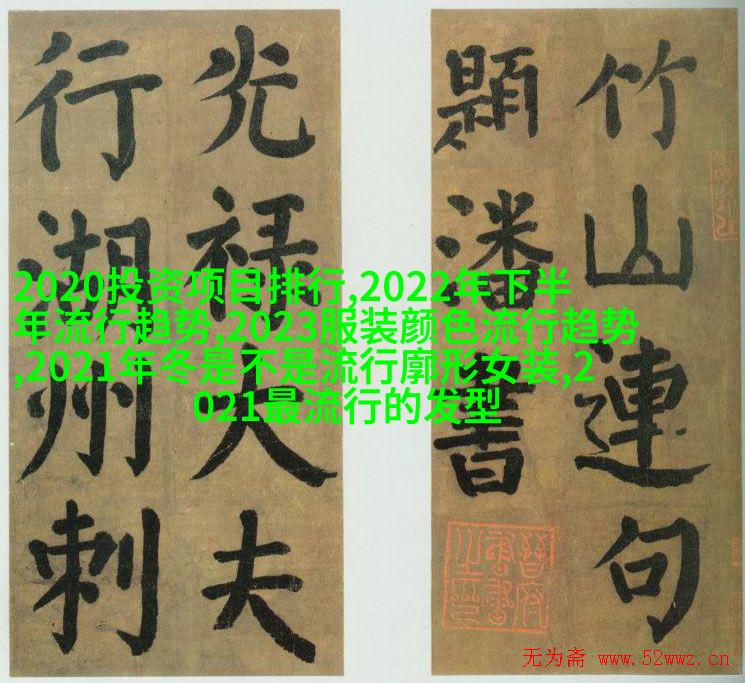 竹山連句
題潘書
光禄大夫
行湖州刺
2020投资项目排行,2022年下半
年流行趋势,2023服装颜色流行趋势
,2021年冬是不是流行廓形女装,2
021最流行的发型
无为斋 www.52wwz.cn